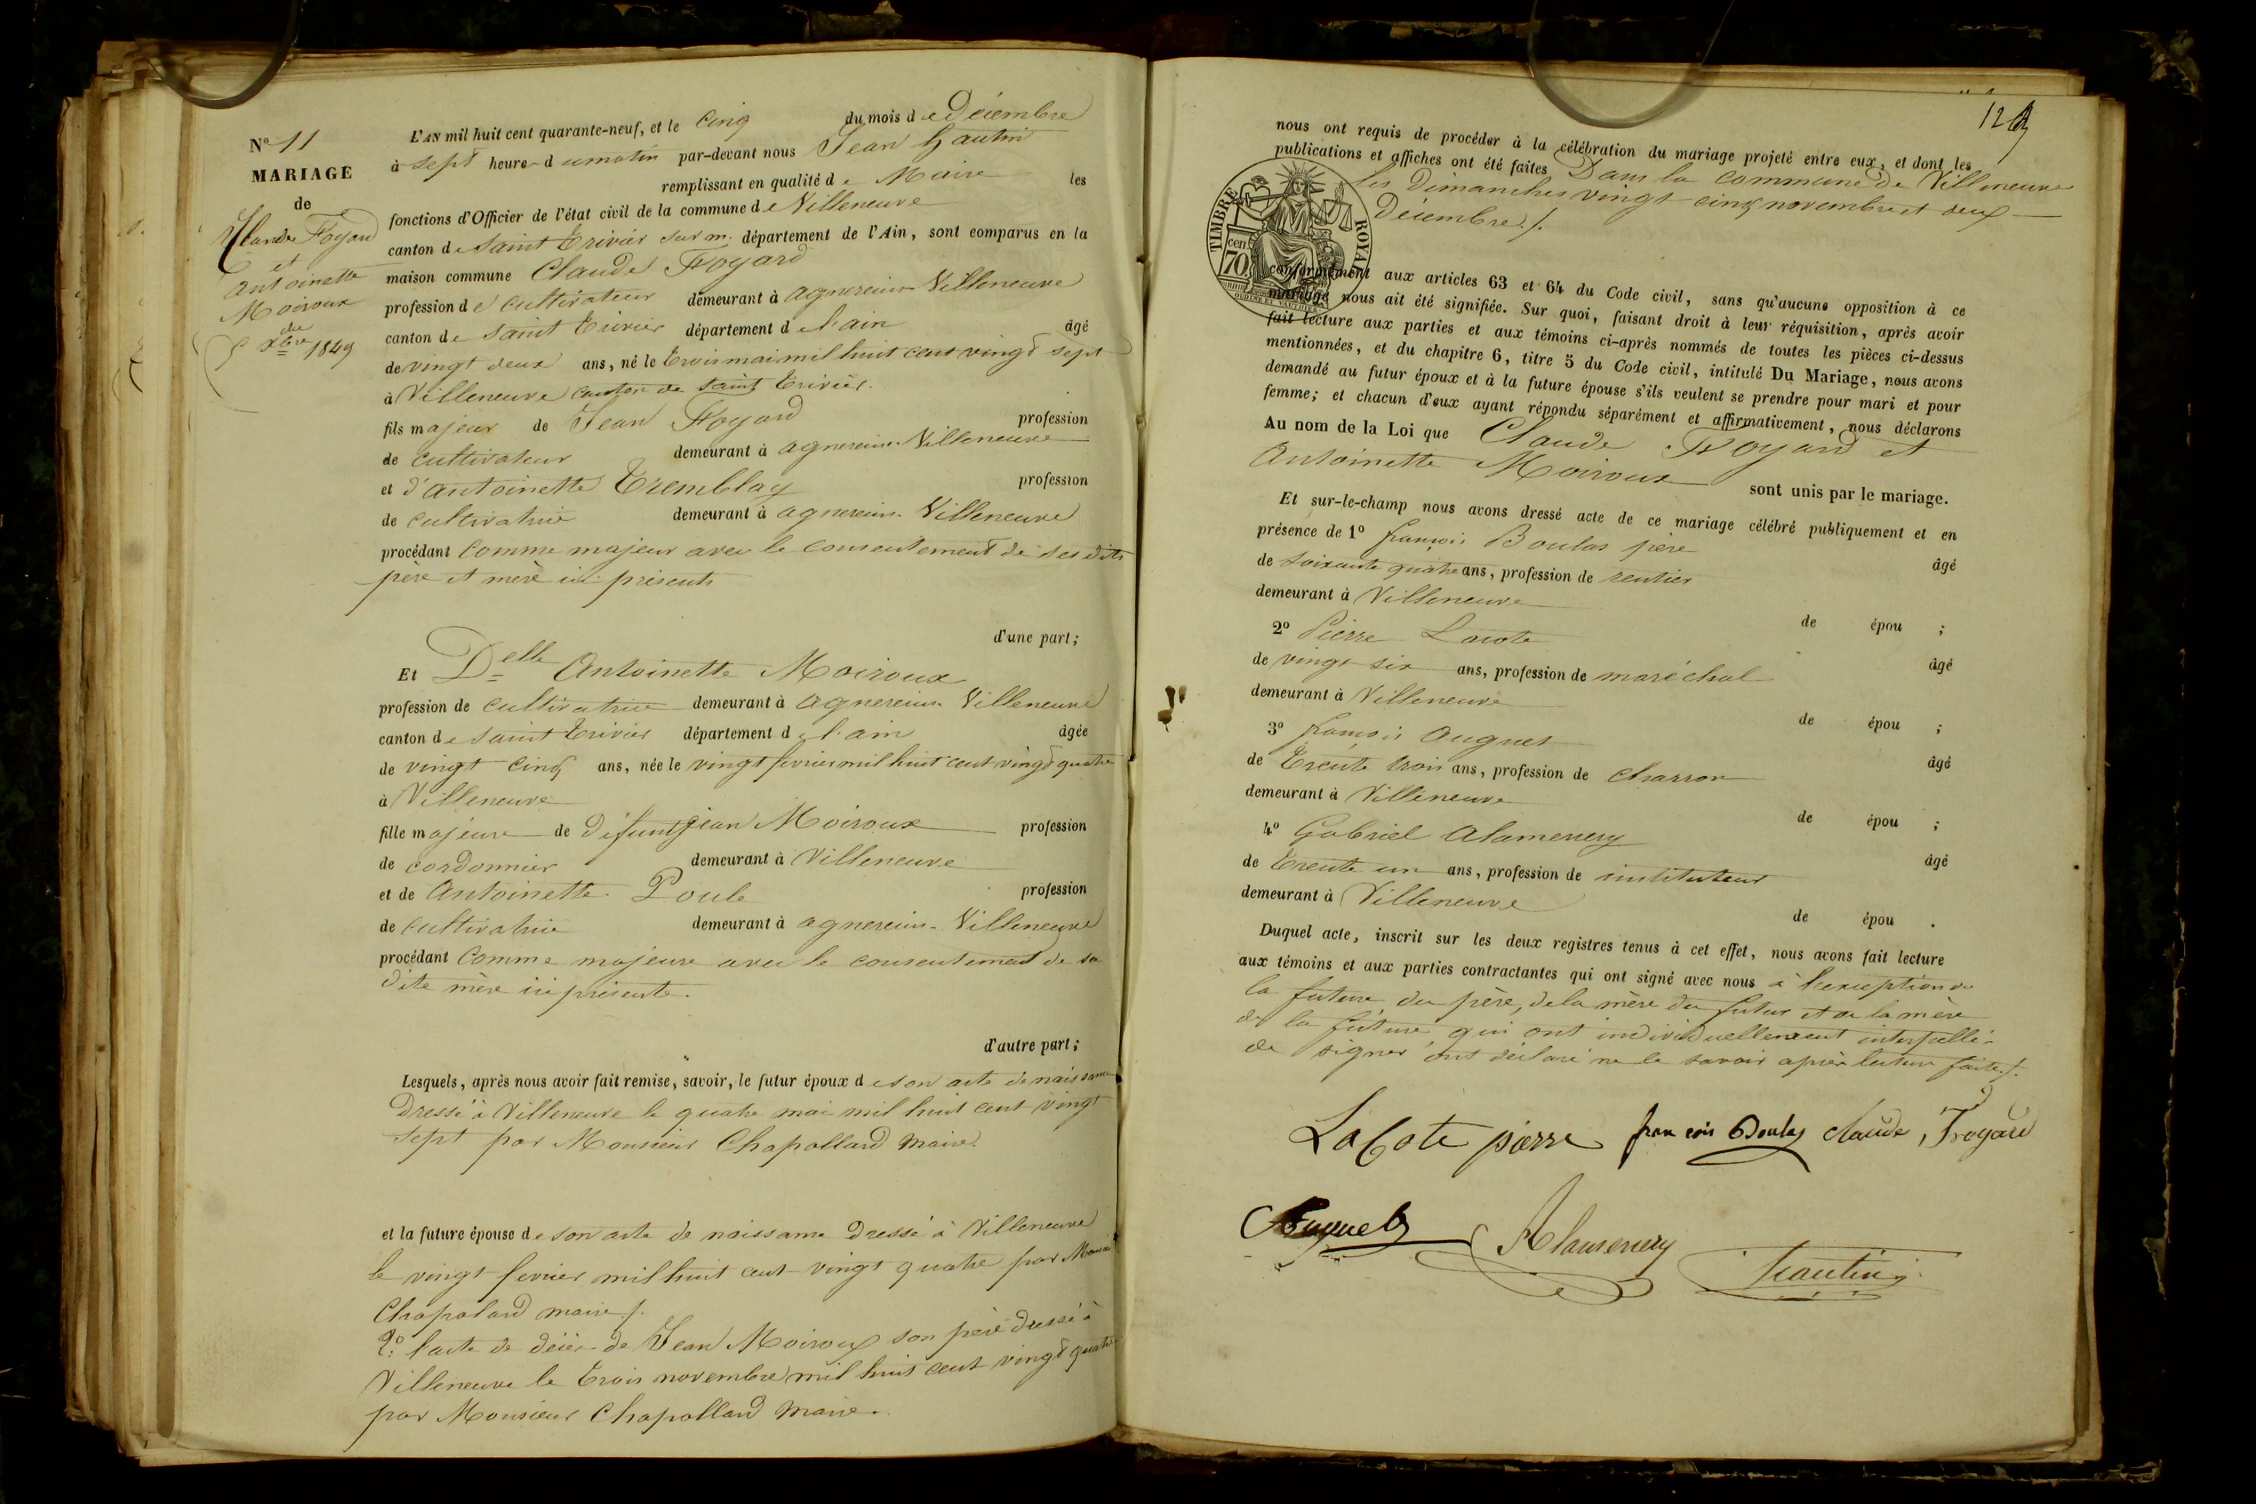 N° 11
MARIAGE
de
Claude Froyard
et
Antoinette
Moiroux
du
5 Xbre 1849
L'AN mil huit cent quarante-neuf, et le cinq du mois de Décembre
à sept heures du matin par-devant nous Jean Gautin
remplissant en qualité de Maire les
fonctions d'Officier de l'état civil de la commune de Villeneuve
canton de Saint Trivier sur m. département de l'Ain, sont comparus en la
maison commune Claude Froyard
profession de cultivateur demeurant à agnereins Villeneuve
canton de Saint Trivier département de l'ain âgé
de vingt deux ans, né le trois mai mil huit cent vingt sept
à Villeneuve canton de Saint Trivier.
fils majeur de Jean Froyard profession
de cultivateur demeurant à agnereins Villeneuve
et d'antoinette Tremblay profession
de cultivatrice demeurant à agnereins Villeneuve
procédant comme majeur avec le consentement de ses dits
père et mère ici présents
d'une part;
Et Delle Antoinette Moiroux
profession de cultivatrice demeurant à agnereins Villeneuve
canton de Saint Trivier département de l'ain âgée
de vingt cinq ans, née le vingt fevrier mil huit cent vingt quatre
à Villeneuve
fille majeure de défunt jean Moiroux profession
de cordonnier demeurant à Villeneuve
et de Antoinette Poule profession
de cultivatrice demeurant à agnereins Villeneuve
procédant comme majeure avec le consentement de sa
dite mère ici présente.
d'autre part;
Lesquels, après nous avoir fait remise, savoir, le futur époux de son acte de naissance
Dressé à Villeneuve le quatre mai mil huit cent vingt
sept par Monsieur Chapollard maire.
et la future épouse de son acte de naissance Dressé à Villeneuve
le vingt fevrier mil huit cent vingt quatre par
Chapolard maire /.
2° l'acte de décès de Jean Moiroux son père dressé à
Villeneuve le trois novembre mil huit cent vingt quatre
par Monsieur Chapollard maire.
nous ont requis de procéder à la célébration du mariage projeté entre eux, et dont les
publications et affiches ont été faites Dans la commune de Villeneuve
les Dimanches vingt cinq novembre et deux
Décembre /.
TIMBRE ROYAL
cen
70
conformément aux articles 63 et 64 du Code civil, sans qu'aucune opposition à ce
mariage nous ait été signifiée. Sur quoi, faisant droit à leur réquisition, après avoir
fait lecture aux parties et aux témoins ci-après nommés de toutes les pièces ci-dessus
mentionnées, et du chapitre 6, titre 5 du Code civil, intitulé Du Mariage, nous avons
demandé au futur époux et à la future épouse s'ils veulent se prendre pour mari et pour
femme; et chacun d'eux ayant répondu séparément et affirmativement, nous déclarons
Au nom de la Loi que Claude Froyard et
Antoinette Moiroux sont unis par le mariage.
Et sur-le-champ nous avons dressé acte de ce mariage célébré publiquement et en
présence de 1° françois Boulas père âgé
de soixante quatre ans, profession de rentier
demeurant à Villeneuve de épou ;
2° Pierre Lacote âgé
de vingt six ans, profession de maréchal
demeurant à Villeneuve de épou ;
3° françois Auguet âgé
de Trente trois ans, profession de charron
demeurant à Villeneuve de épou ;
4° Gabriel Alamercery âgé
de Trente un ans, profession de instituteur
demeurant à Villeneuve de épou .
Duquel acte, inscrit sur les deux registres tenus à cet effet, nous avons fait lecture
aux témoins et aux parties contractantes qui ont signé avec nous à l'exception de
la future du père, de la mère du futur et de la mère
de la future qui ont individuellement interpellé
de signer ont déclaré ne le savoir après lecture faite /.
LaCote pierre françois Boulas claude Froyard
Auguet Alamercery Gautin